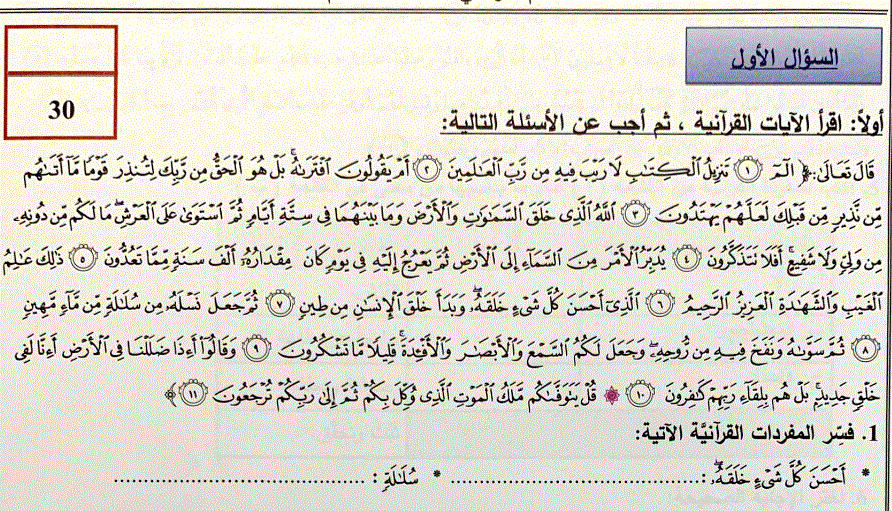 السؤال الأول
30
أولاً: اقرأ الآيات القرآنية ، ثم أجب عن الأسئلة التالية:
قَالَ تَعَالَىٰ: ﴿ الٓمٓ ١ تَنزِيلُ ٱلْكِتَٰبِ لَا رَيْبَ فِيهِ مِن رَّبِّ ٱلْعَٰلَمِينَ ٢ أَمْ يَقُولُونَ ٱفْتَرَىٰهُ ۚ بَلْ هُوَ ٱلْحَقُّ مِن رَّبِّكَ لِتُنذِرَ قَوْمًا مَّآ أَتَىٰهُم
مِّن نَّذِيرٍ مِّن قَبْلِكَ لَعَلَّهُمْ يَهْتَدُونَ ٣ ٱللَّهُ ٱلَّذِى خَلَقَ ٱلسَّمَٰوَٰتِ وَٱلْأَرْضَ وَمَا بَيْنَهُمَا فِى سِتَّةِ أَيَّامٍ ثُمَّ ٱسْتَوَىٰ عَلَى ٱلْعَرْشِ ۖ مَا لَكُم مِّن دُونِهِۦ
مِن وَلِىٍّ وَلَا شَفِيعٍ ۚ أَفَلَا تَتَذَكَّرُونَ ٤ يُدَبِّرُ ٱلْأَمْرَ مِنَ ٱلسَّمَآءِ إِلَى ٱلْأَرْضِ ثُمَّ يَعْرُجُ إِلَيْهِ فِى يَوْمٍ كَانَ مِقْدَارُهُۥٓ أَلْفَ سَنَةٍ مِّمَّا تَعُدُّونَ ٥ ذَٰلِكَ عَٰلِمُ
ٱلْغَيْبِ وَٱلشَّهَٰدَةِ ٱلْعَزِيزُ ٱلرَّحِيمُ ٦ ٱلَّذِىٓ أَحْسَنَ كُلَّ شَىْءٍ خَلَقَهُۥ ۖ وَبَدَأَ خَلْقَ ٱلْإِنسَٰنِ مِن طِينٍ ٧ ثُمَّ جَعَلَ نَسْلَهُۥ مِن سُلَٰلَةٍ مِّن مَّآءٍ مَّهِينٍ
٨ ثُمَّ سَوَّىٰهُ وَنَفَخَ فِيهِ مِن رُّوحِهِۦ ۖ وَجَعَلَ لَكُمُ ٱلسَّمْعَ وَٱلْأَبْصَٰرَ وَٱلْأَفْـِٔدَةَ ۚ قَلِيلًا مَّا تَشْكُرُونَ ٩ وَقَالُوٓا۟ أَءِذَا ضَلَلْنَا فِى ٱلْأَرْضِ أَءِنَّا لَفِى
خَلْقٍ جَدِيدٍۭ ۚ بَلْ هُم بِلِقَآءِ رَبِّهِمْ كَٰفِرُونَ ١٠ ۞ قُلْ يَتَوَفَّىٰكُم مَّلَكُ ٱلْمَوْتِ ٱلَّذِى وُكِّلَ بِكُمْ ثُمَّ إِلَىٰ رَبِّكُمْ تُرْجَعُونَ ١١ ﴾
1. فسِّر المفردات القرآنيَّة الآتية:
* أَحْسَنَ كُلَّ شَىْءٍ خَلَقَهُۥ ۖ : .................................... * سُلَٰلَةٍ : ....................................